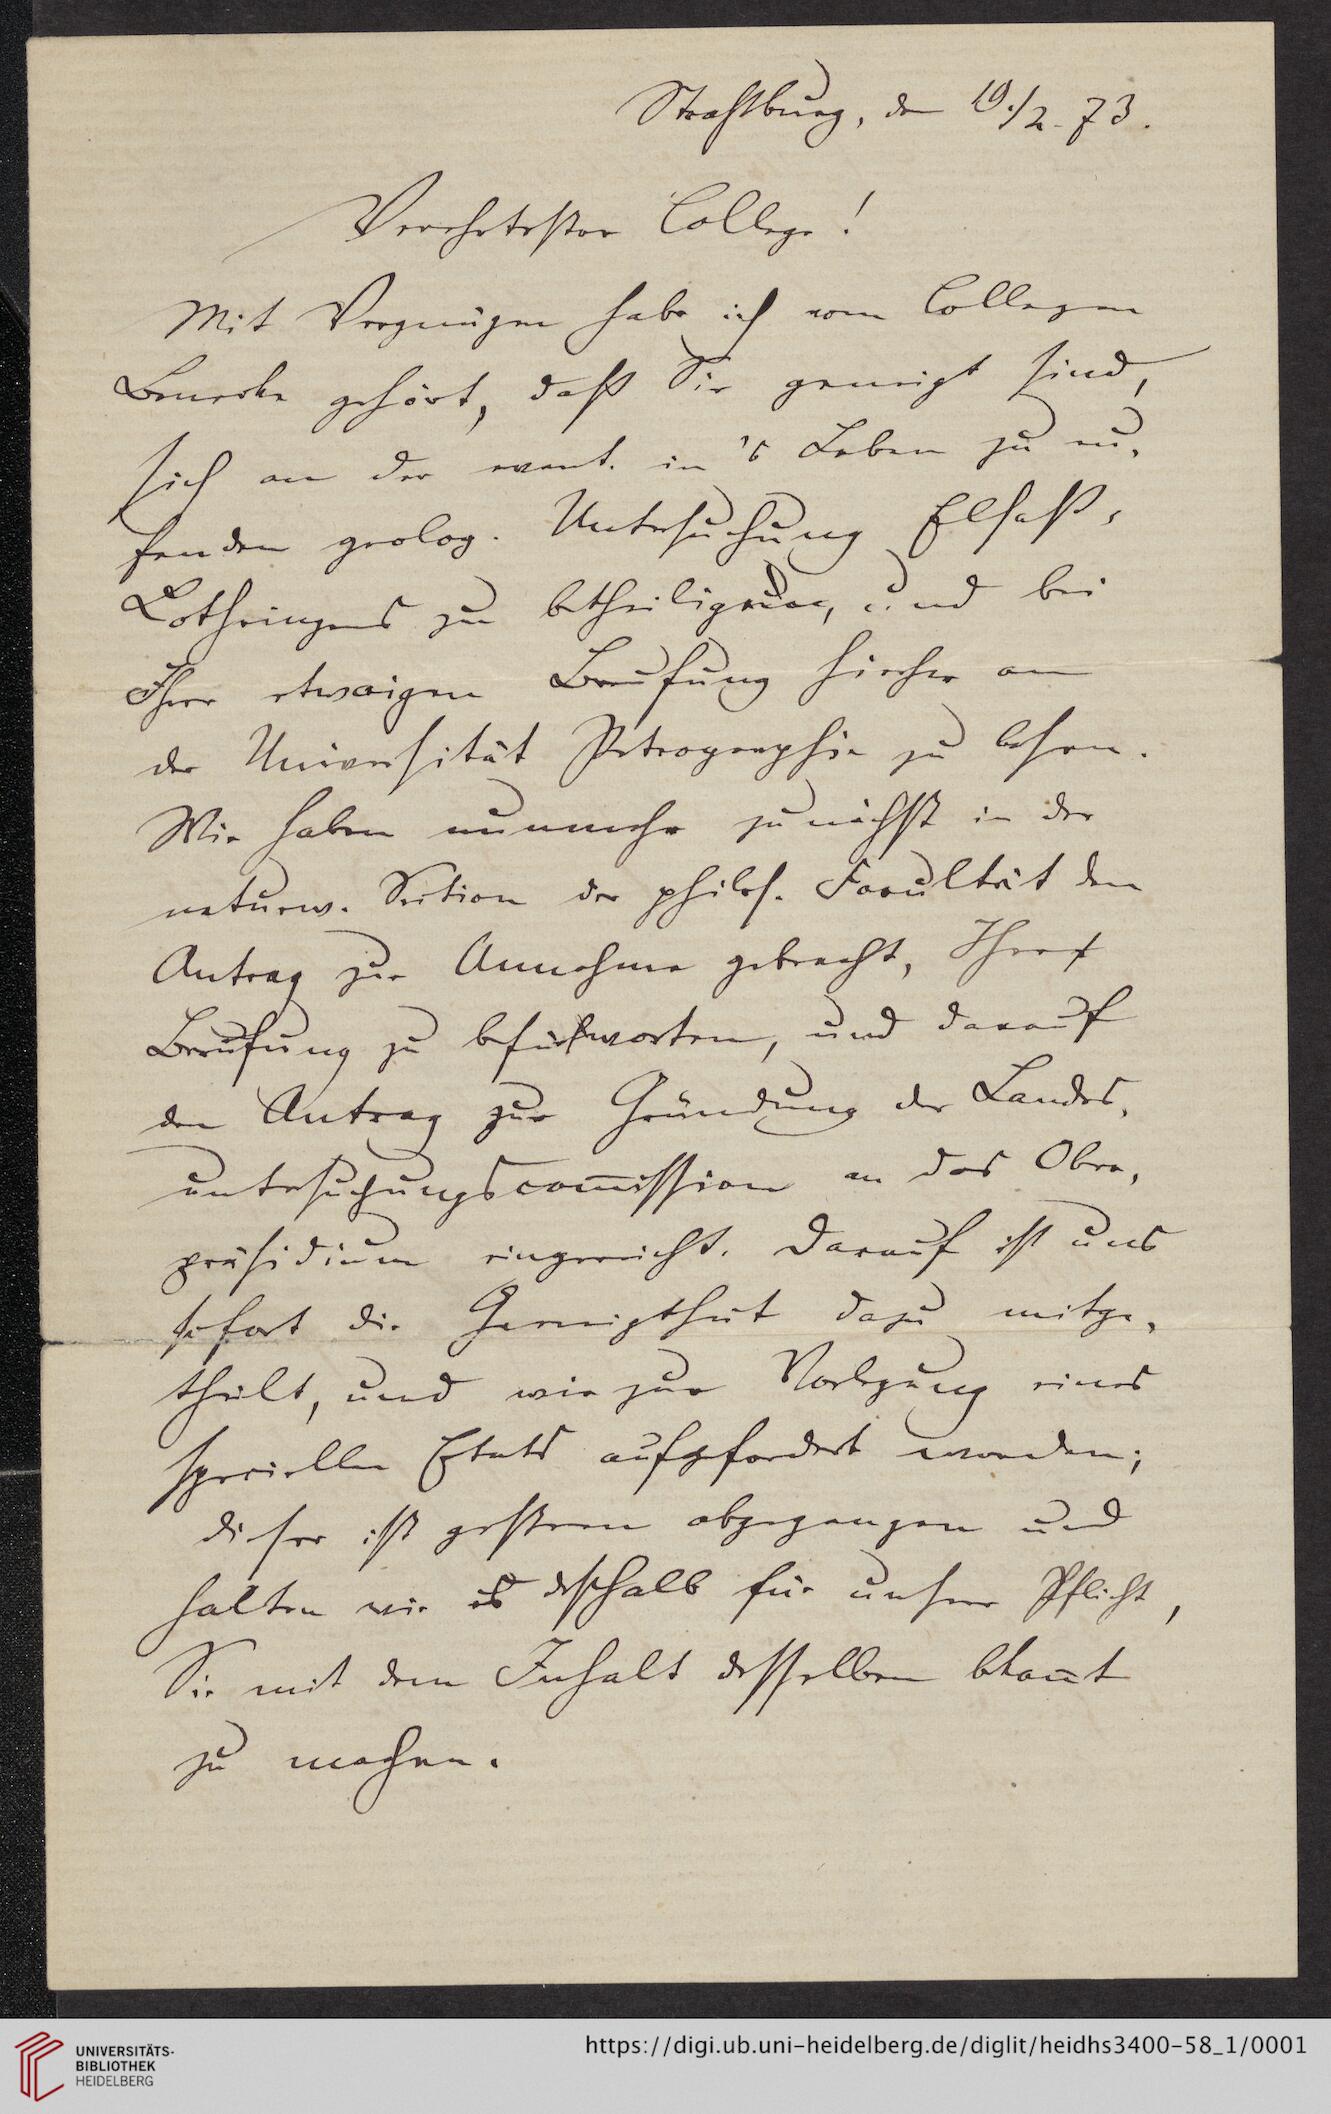 Straßburg, den 19./2. 73.
Verehrtester College!
Mit Vergnügen habe ich vom Collegen
Benecke gehört, daß Sie geneigt sind,
sich an der event. in's Leben zu ru-
fenden geolog. Untersuchung Elsaß-
Lothringens zu betheiligen, und bei
Ihrer etwaigen Berufung hierher an
der Universität Petrographie zu lehren.
Wir haben nunmehr zunächst in der
naturw. Section der philos. Facultät den
Antrag zur Annahme gebracht, Ihre
Berufung zu befürworten, und darauf
den Antrag zur Gründung der Landes-
untersuchungscom̅ission an das Ober-
präsidium eingereicht. Darauf ist uns
sofort die Geneigtheit dazu mitge-
theilt, und wir zur Vorlegung eines
speciellen Etats aufgefordert worden;
dieser ist gestern abgegangen und
halten wir es deshalb für unsere Pflicht,
Sie mit dem Inhalt desselben bekan̅t
zu machen.
UNIVERSITÄTS-
BIBLIOTHEK
HEIDELBERG
https://digi.ub.uni-heidelberg.de/diglit/heidhs3400-58_1/0001